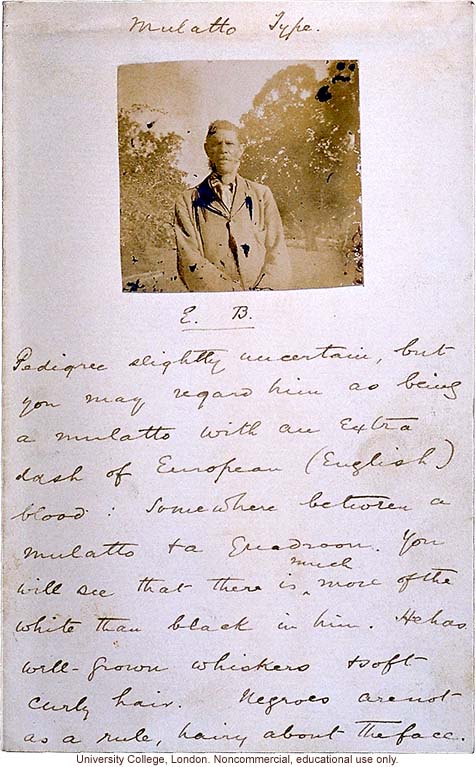 Mulatto Type.
E. B.
Pedigree slightly uncertain, but
you may regard him as being
a mulatto with an Extra
dash of European (English)
blood: Somewhere between a
mulatto & a Quadroon. You
will see that there is much more of the
white than black in him. He has
well-grown whiskers & soft
curly hair. Negroes are not
as a rule, hairy about the face.
University College, London. Noncommercial, educational use only.